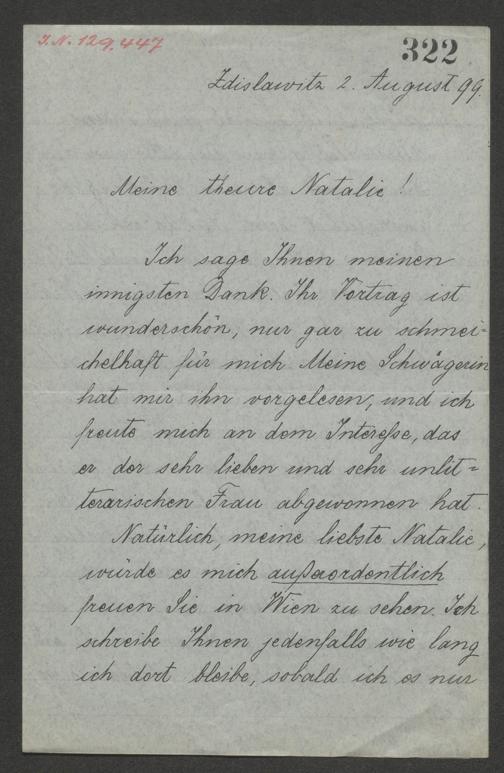 J.N. 129,447
322
Zdislawitz 2. August 99.
Meine theure Natalie!
Ich sage Ihnen meinen
innigsten Dank. Ihr Vortrag ist
wunderschön, nur gar zu schmei-
chelhaft für mich Meine Schwägerin
hat mir ihn vorgelesen, und ich
freute mich an dem Interesse, das
er der sehr lieben und sehr unlit-
terarischen Frau abgewonnen hat.
Natürlich, meine liebste Natalie,
würde es mich außerordentlich
freuen Sie in Wien zu sehen. Ich
schreibe Ihnen jedenfalls wie lang
ich dort bleibe, sobald ich es nur